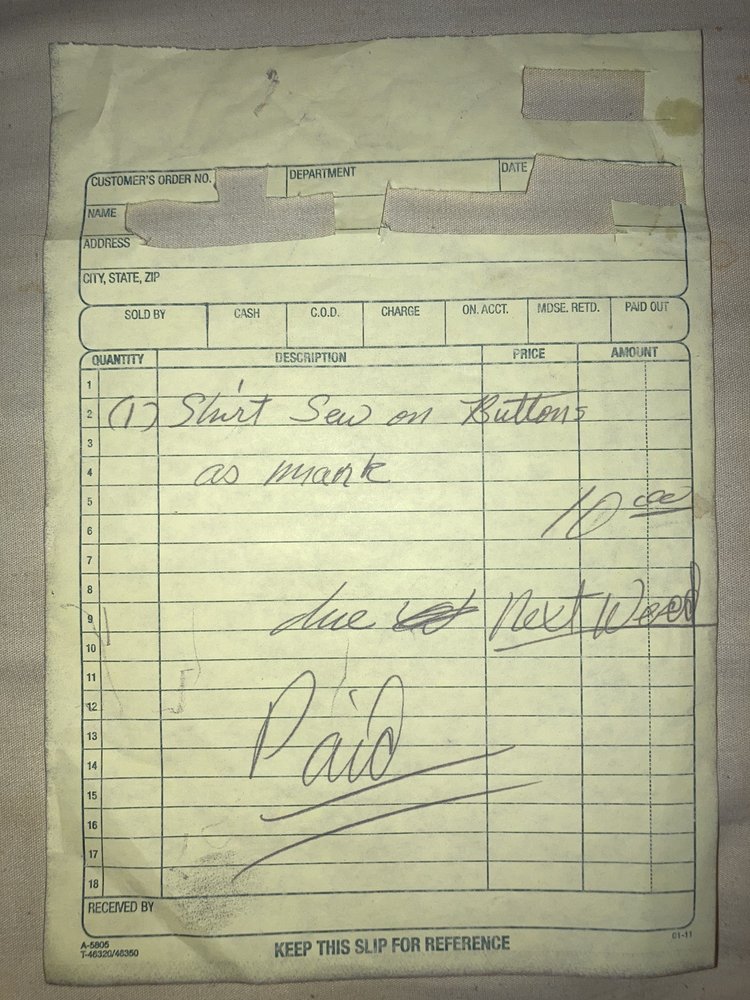 CUSTOMER'S ORDER NO. DEPARTMENT DATE
NAME
ADDRESS
CITY, STATE, ZIP
SOLD BY CASH C.O.D. CHARGE ON. ACCT. MDSE. RETD. PAID OUT
QUANTITY DESCRIPTION PRICE AMOUNT
1
2 (1) Shirt Sew on Buttons
3
4 as mark
5 10 00
6
7
8
9 due Next Wed
10
11
12
13
14 Paid
15
16
17
18
RECEIVED BY
A-5805
T-46320/46350
KEEP THIS SLIP FOR REFERENCE
01-11